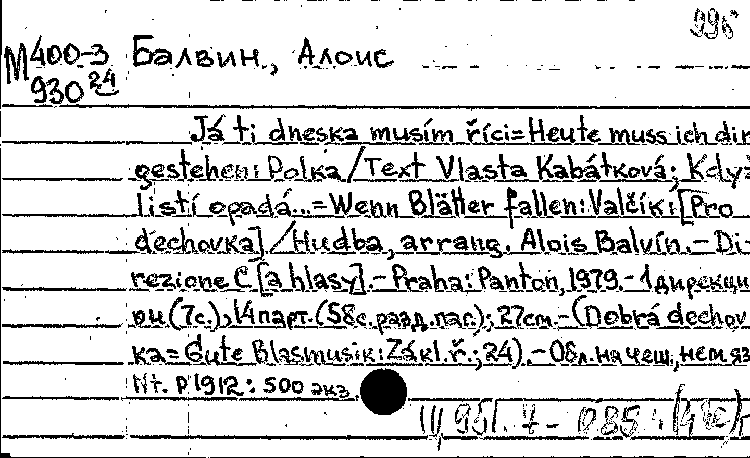 99б
М400-3 Балвин, Алоис
930 24
Já ti dneska musím říci=Heute muss ich dir
gestehen: Polka/Text Vlasta Kabátková; Když
listí opadá...=Wenn Blätter fallen: Valčík: [Pro
dechovka]/Hudba, arrang. Alois Balvín.-Di-
rezione C [a hlasy].-Praha: Panton, 1979.-1 дирекци-
он (7с.), 14 парт. (58с. разд. паг.); 27см.-(Dobrá dechov-
ka=Gute Blasmusik: Zákl. ř.; 24).-Обл. на чеш., нем яз
Nt. P 1912: 500 экз.